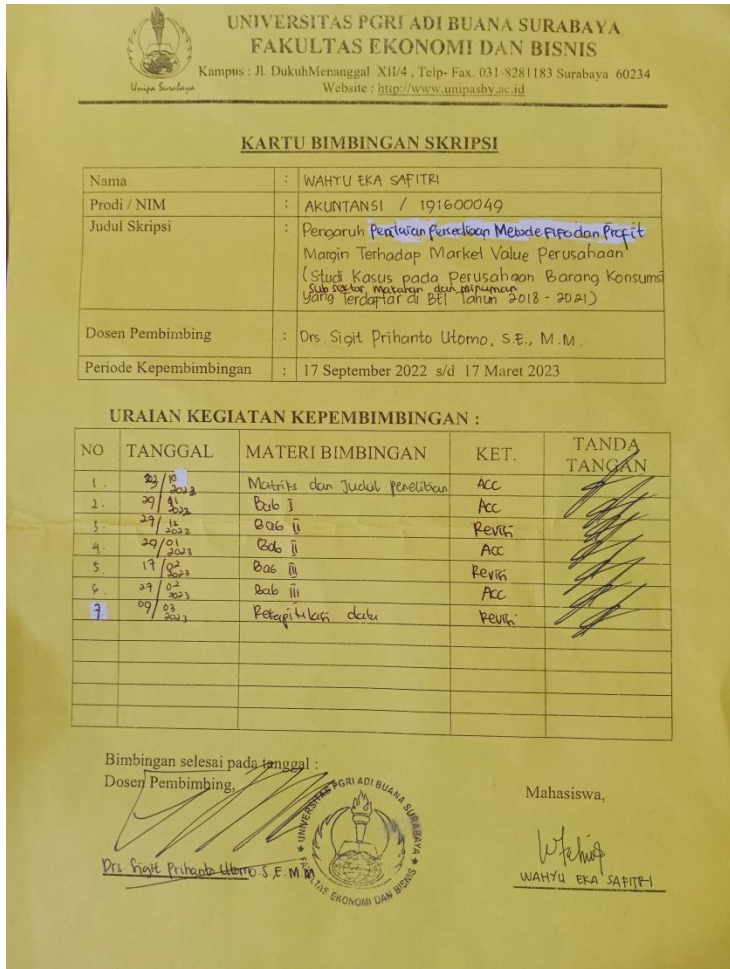 UNIVERSITAS PGRI ADI BUANA SURABAYA
FAKULTAS EKONOMI DAN BISNIS
Kampus : Jl. DukuhMenanggal XII/4 , Telp- Fax. 031-8281183 Surabaya 60234
Website : http://www.unipasby.ac.id
Unipa Surabaya
KARTU BIMBINGAN SKRIPSI
Nama : WAHYU EKA SAFITRI
Prodi / NIM : AKUNTANSI / 191600049
Judul Skripsi : Pengaruh Penilaian Persediaan Metode FIFO dan Profit
Margin Terhadap Market Value Perusahaan
(Studi Kasus pada Perusahaan Barang Konsumsi
Sub sektor makanan dan minuman
yang Terdaftar di BEI Tahun 2018 - 2021)
Dosen Pembimbing : Drs. Sigit Prihanto Utomo, S.E., M.M.
Periode Kepembimbingan : 17 September 2022 s/d 17 Maret 2023
URAIAN KEGIATAN KEPEMBIMBINGAN :
NO TANGGAL MATERI BIMBINGAN KET. TANDA TANGAN
1. Matriks dan Judul penelitian Acc
2. Bab I Acc
3. Bab II Revisi
4. 29/01 2023 Bab II Acc
5. 17/02 2023 Bab III Revisi
6. 27/02 2023 Bab III Acc
7 09/03 2023 Rekapitulasi data Revisi
Bimbingan selesai pada tanggal :
Dosen Pembimbing,
Mahasiswa,
UNIVERSITAS PGRI ADI BUANA SURABAYA
FAKULTAS EKONOMI DAN BISNIS
Drs Sigit Prihanto Utomo S.E M
WAHYU EKA SAFITRI